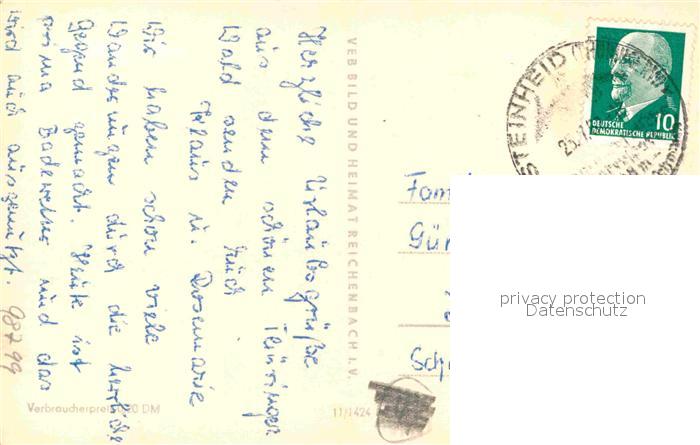 Herzliche Urlaubsgrüße
aus dem schönen Thüringer
Wald senden Euch
Klaus u. Rosemarie
Wir haben schon viele
Wanderungen durch die herrliche
Gegend gemacht. Heute ist
prima Badewetter und das
wird auch ausgenutzt.
98799
VEB BILD UND HEIMAT REICHENBACH I. V.
Verbraucherpreis 0,20 DM
11/1424
STEINHEID
10
DEUTSCHE
DEMOKRATISCHE REPUBLIK
Fam
Gün
Sch
privacy protection
Datenschutz